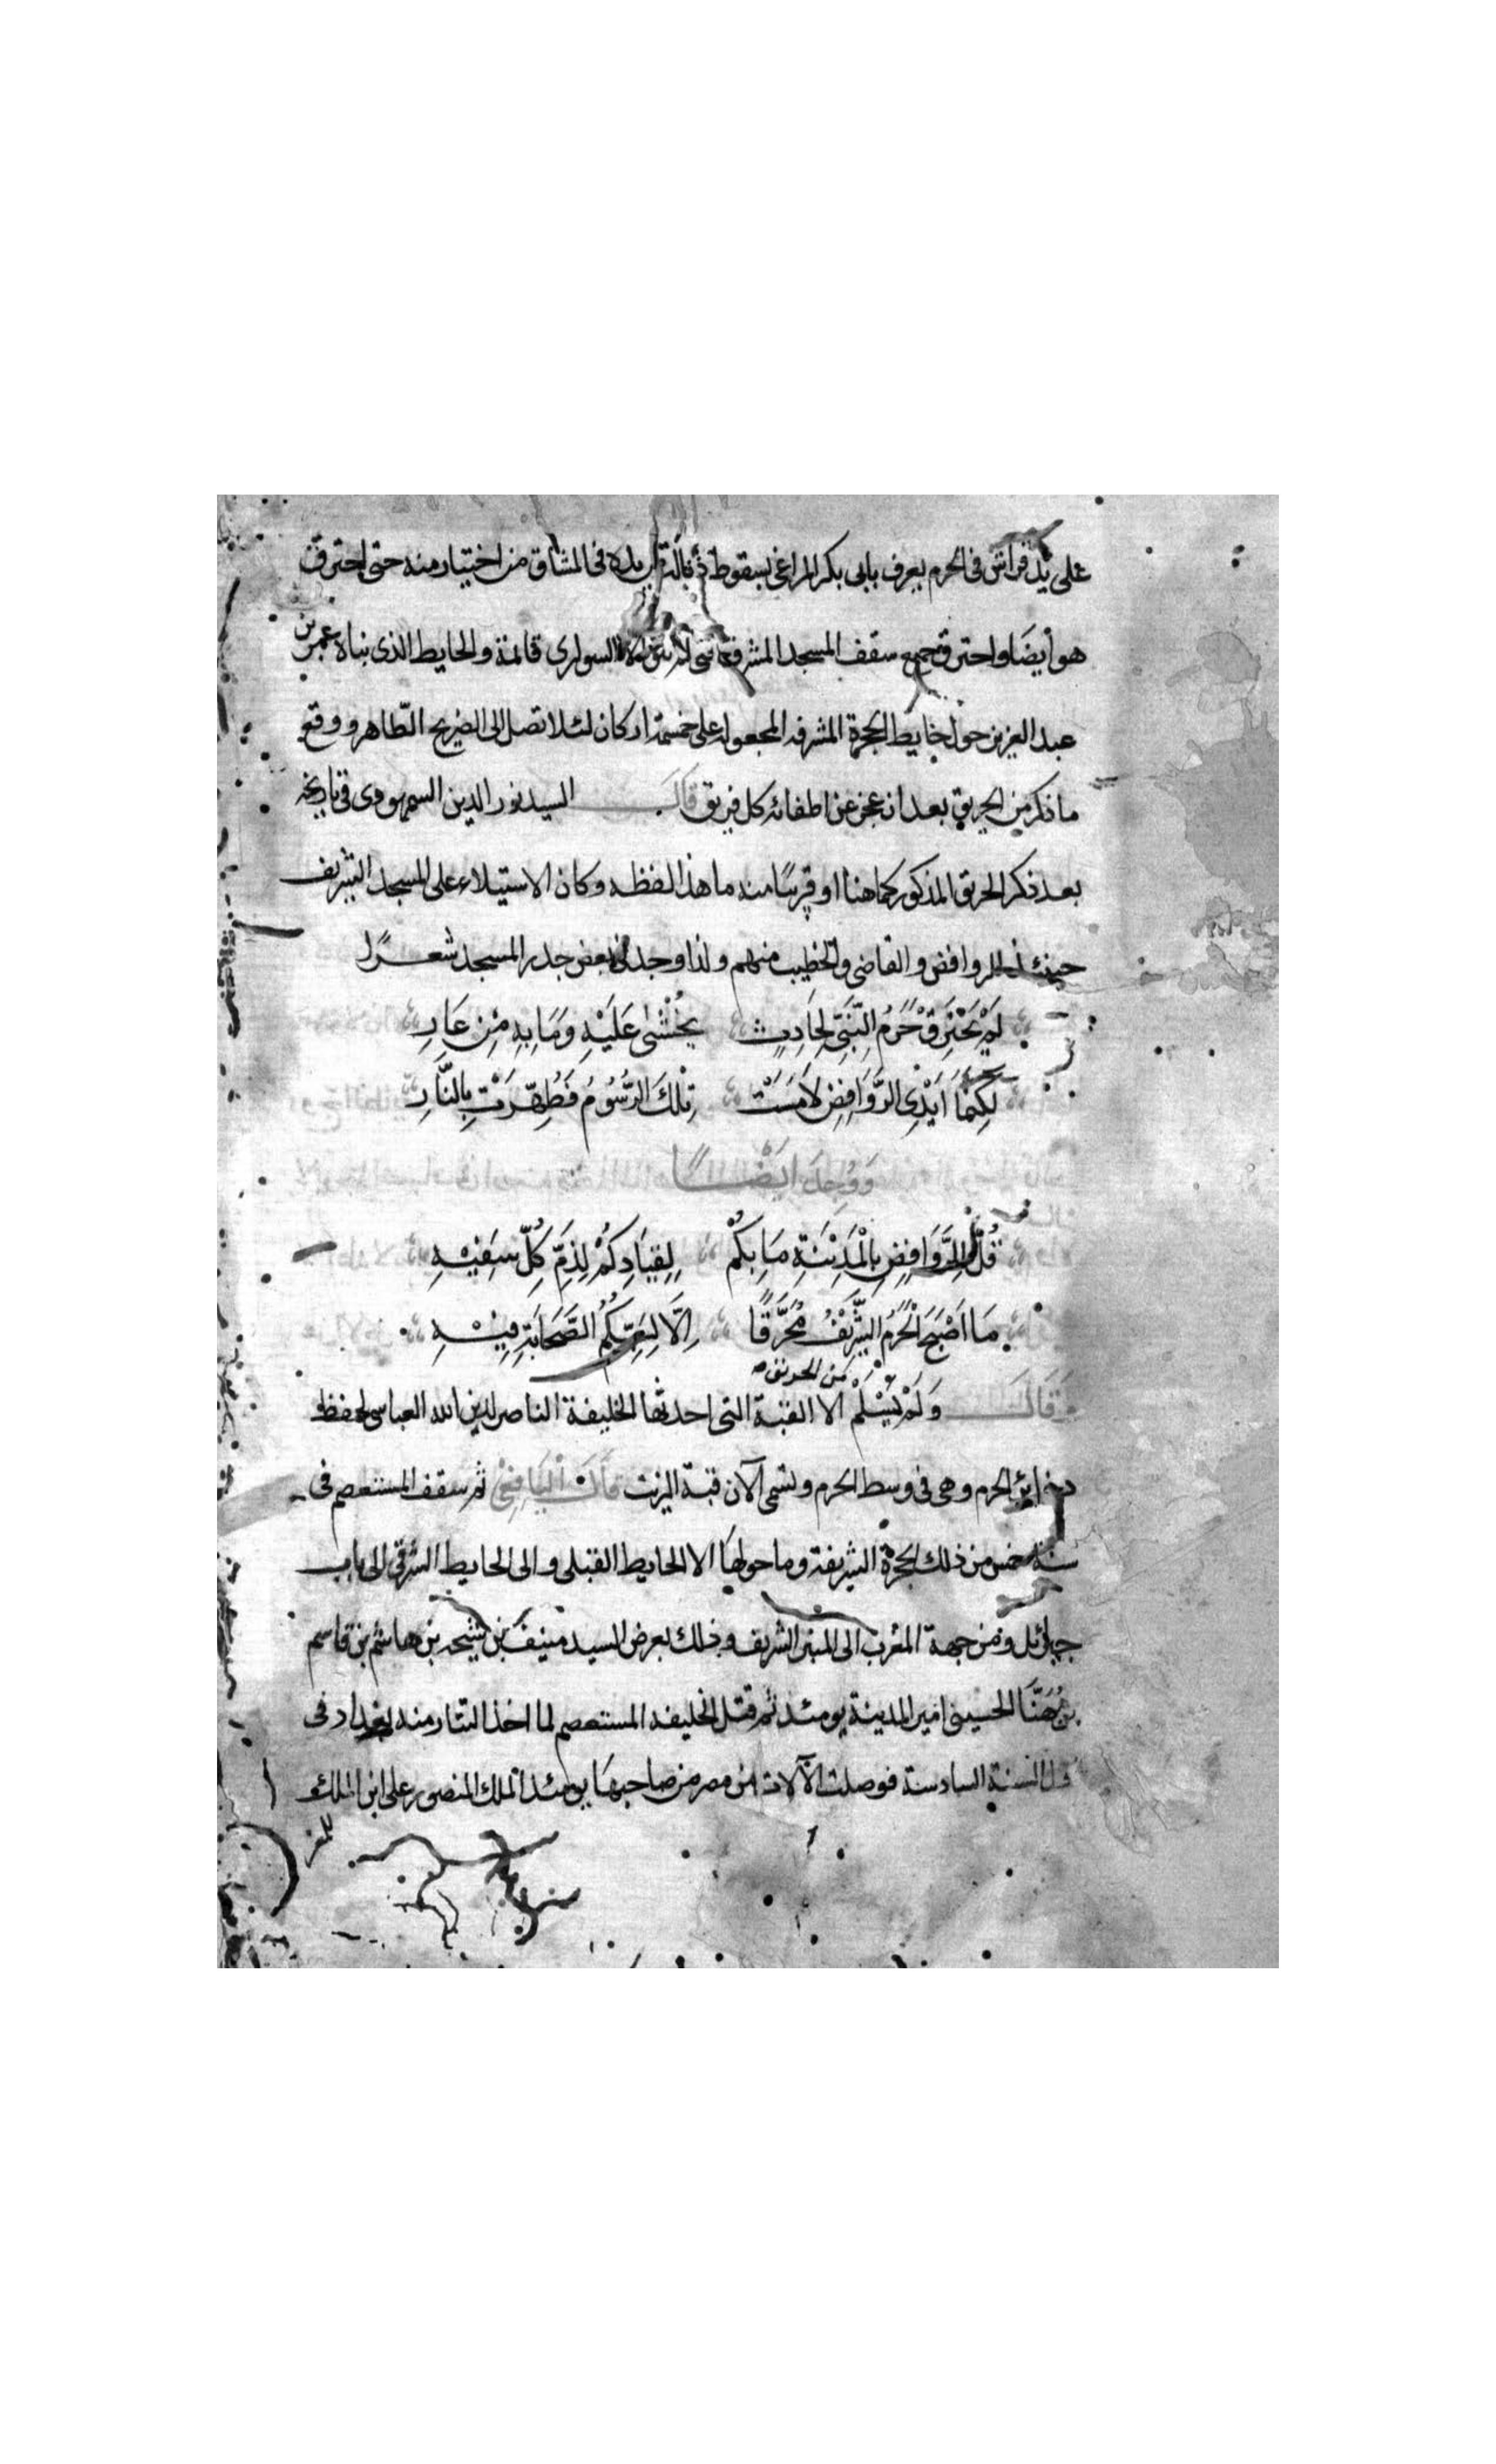 على يد فراش فى الحرم يعرف بابى بكر المراغى بسقوط ذبالة يده فى المشاق من اختيار منه حتى احترق
هو أيضا واحترق جميع سقف المسجد المشرف حتى لم يبق الا السوارى قائمة والحايط الذى بناه عمر بن
عبد العزيز حول حايط الحجرة المشرفه المجعوله على خمسة اركان لئلا تصل الى الضريح الطاهر ووقع
ما ذكر من الحريق بعد ان عجز عن اطفائه كل فريق قال السيد نور الدين السمهودى فى تاريخه
بعد ذكر الحريق المذكور كما هنا او قريبا منه ما هذا لفظه وكان الاستيلاء على المسجد الشريف
حينئذ للروافض والقاضى والخطيب منهم ولذا وجد فى بعض جدر المسجد شعرًا
لَمْ يَحْتَرِقْ حَرَمُ النَّبِيّ لِحَادِثٍ يُخْشَى عَلَيْهِ وَمَا بِهِ مِنْ عَارِ
لَكِنَّمَا أَيْدِى الرَّوَافِضِ لَامَسَتْ تِلْكَ الرُّسُومُ فَطُهِّرَتْ بِالنَّارِ
وَوُجِدَ اَيْضًا
قُلْ لِلرَّوَافِضِ بِالْمَدِيْنَةِ مَا بِكُمْ لِقِيَادِكُمْ لِذَمِّ كُلّ سَفِيْهِ
مَا اَصْبَحَ الْحَرَمُ الشَّرِيْفُ مُحَرَّقًا اِلَّا لِسَبِّكُمُ الصَّحَابَةِ فِيْهِ
من الحريق صح
وَقَالَ وَلَمْ يَسْلَمْ الا القبة التى احدثها الخليفة الناصر لدين الله العباسى لحفظ
ذخائر الحرم وهى فى وسط الحرم وتسمى الآن قبة الزيت قَالَ الْيَافِعِىْ ثم سقف المستعصم فى
سنة خمس من ذلك الحجرة الشريفة وما حولها الا الحايط القبلى والى الحايط الشرقى الى باب
جبرائل ومن جهة المغرب الى المنبر الشريف وذلك بعرض السيد منيف بن شيحه بن هاشم بن قاسم
بن مُهَنَّا الحسينى امير المدينة يومئذ ثم قتل الخليفه المستعصم لما اخذ التتار منه بغداد فى
السنة السادسة فوصلت الآلات من مصر من صاحبها يومئذ الملك المنصور على ابن الملك
المعز